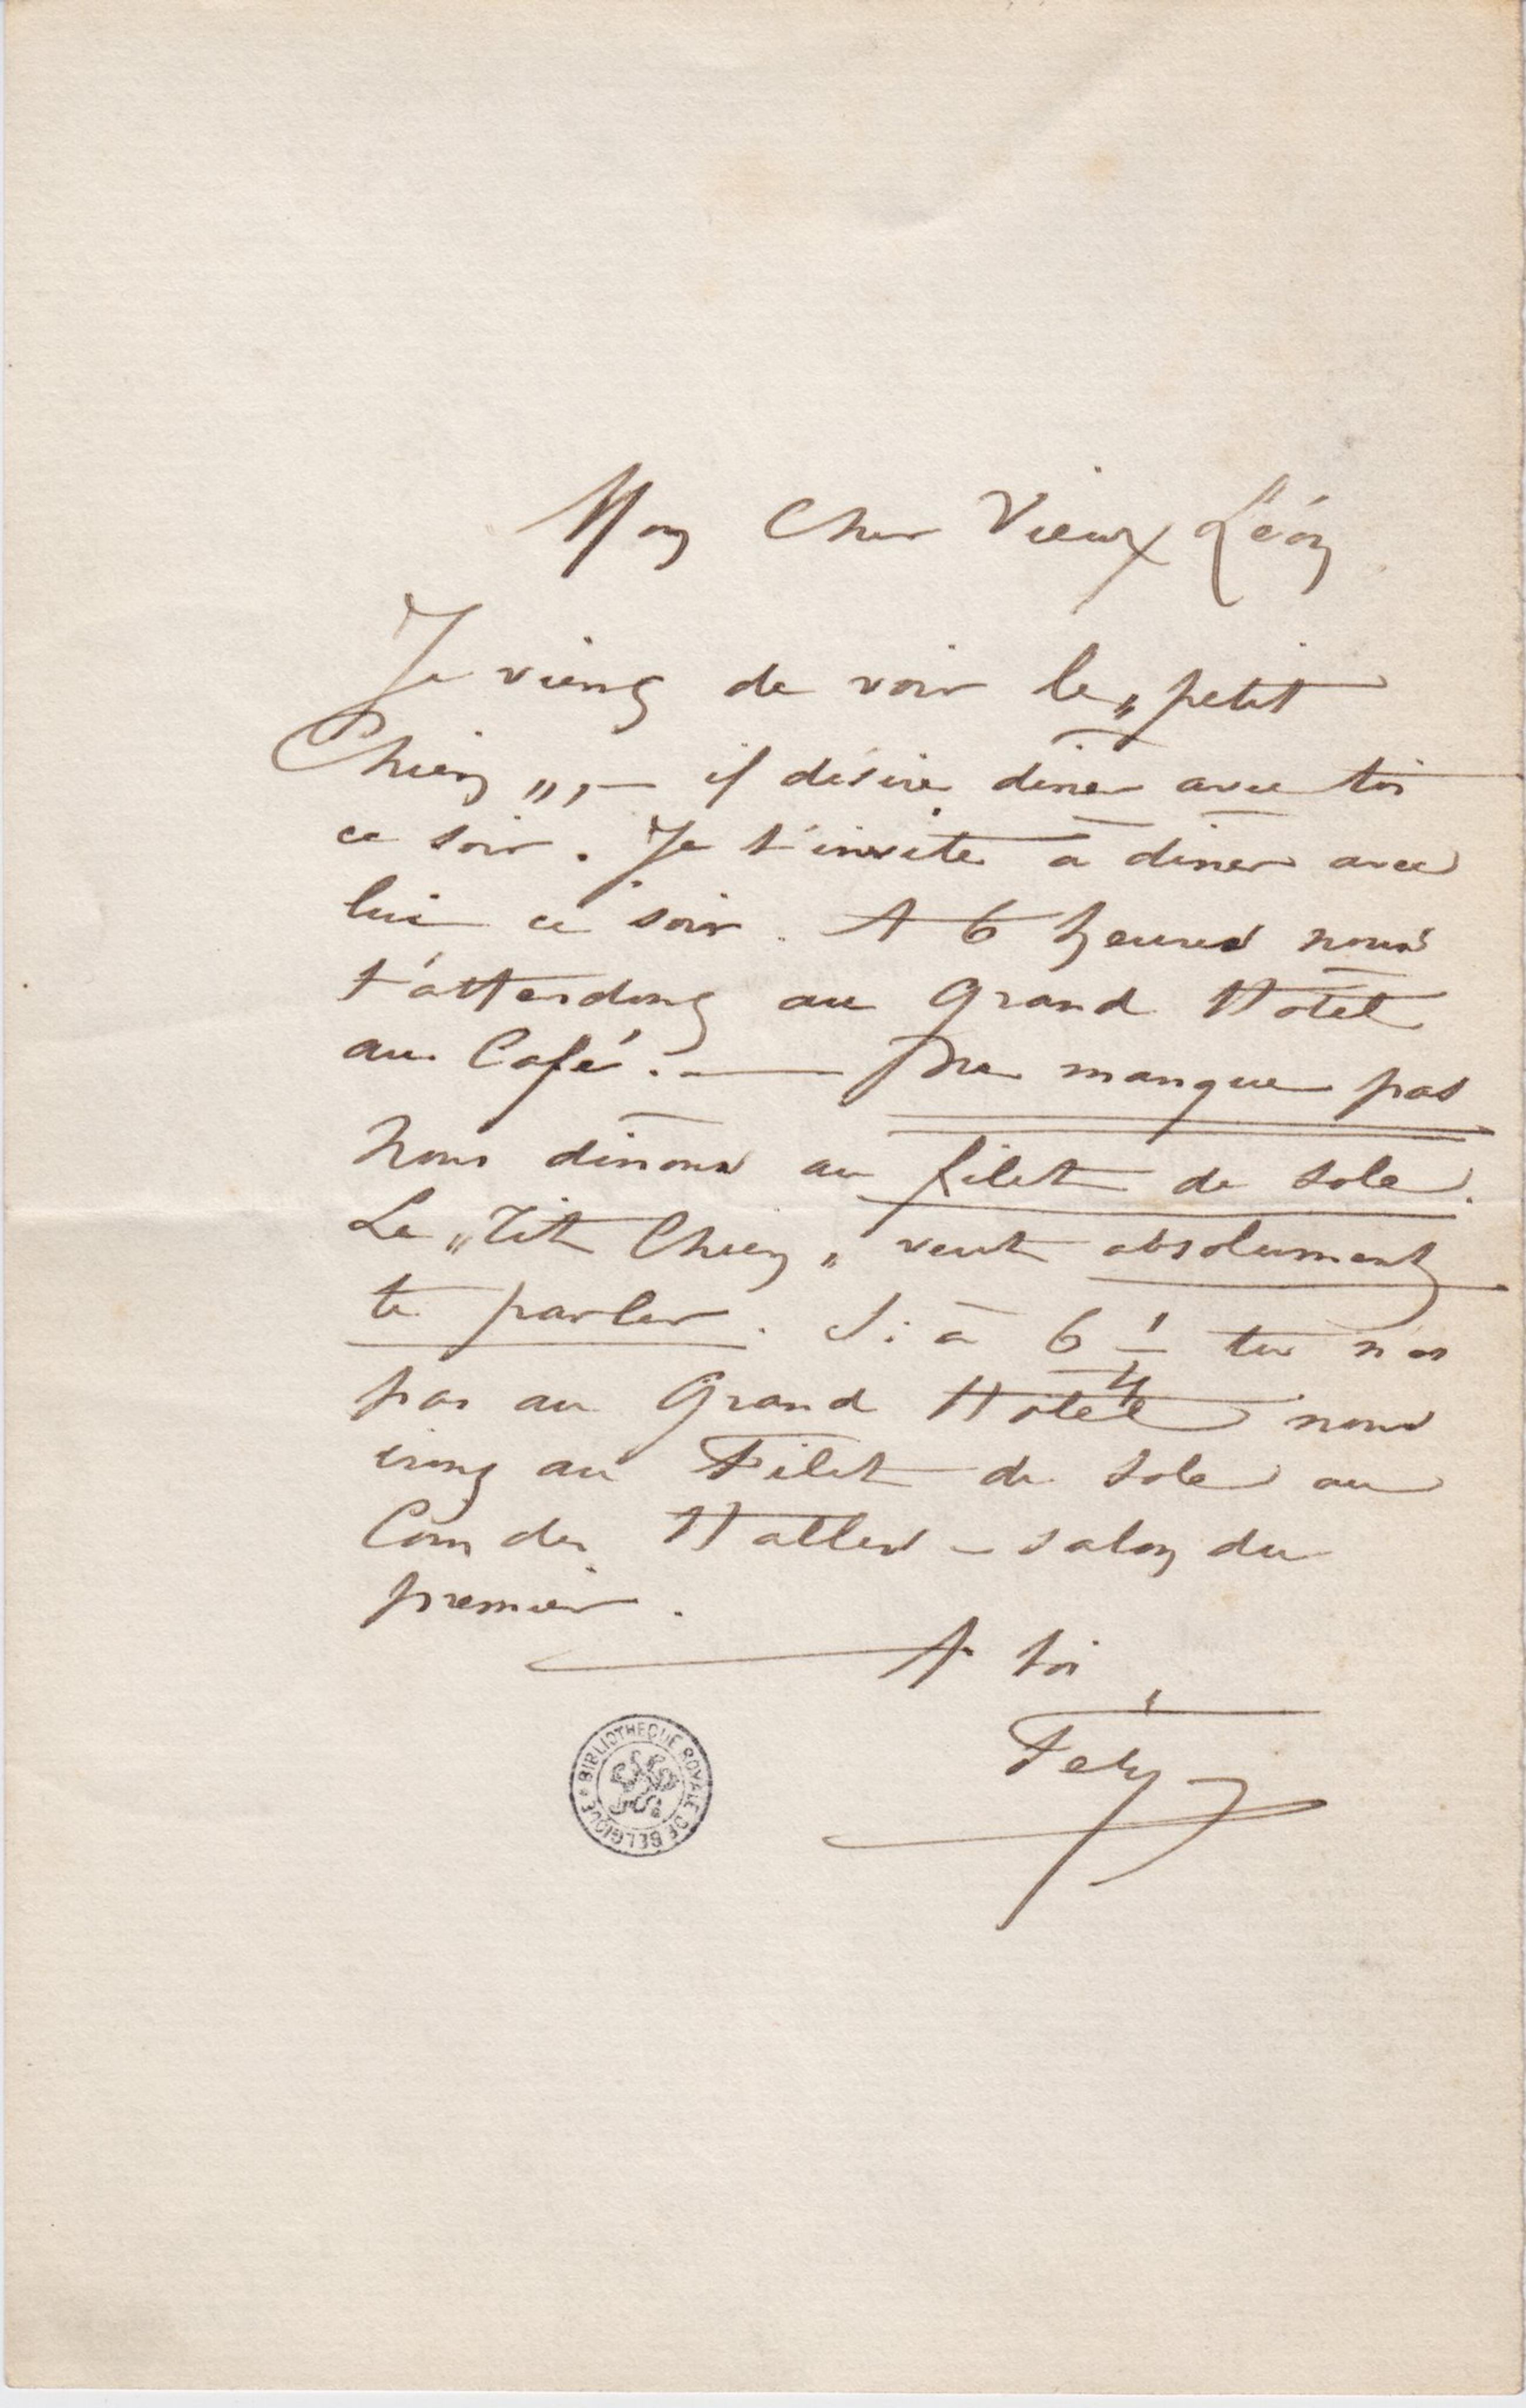 Mon Cher Vieux Léon
Je viens de voir le „petit
Chien„, — il désire diner avec toi
ce soir. Je t'invite à diner avec
lui ce soir. A 6 heures nous
t'attendons au Grand Hôtel
au Café. — Ne manque pas
Nous dinons au filet de sole.
Le „Tit Chien„ veut absolument
te parler. Si à 6 1/4 tu n'es
pas au Grand Hôtel nous
irons au Filet de Sole au
Coin des Halles — salon du
premier.
A toi
Fély
BIBLIOTHEQUE ROYALE DE BELGIQUE